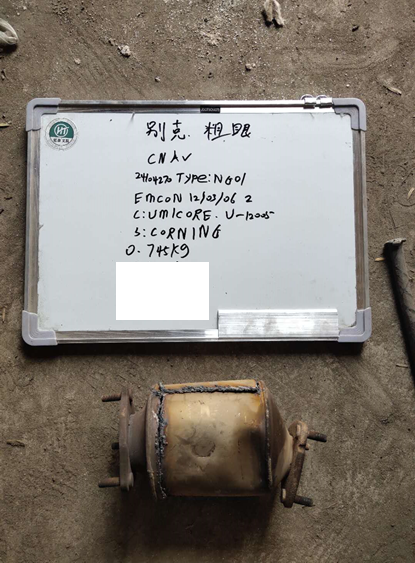 别克. 粗眼
CNAV
24104270 TYPE:NG01
EMCON 12/03/06 2
C:UMICORE. U-12005
S:CORNING
0.745Kg
HT